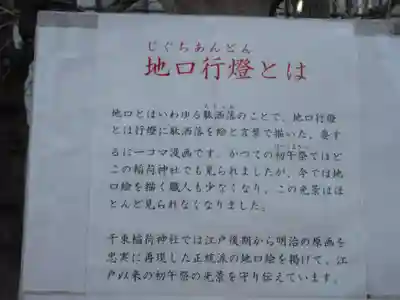 じぐちあんどん
地口行燈とは
地口とはいわゆる駄洒落のことで、地口行燈
とは行燈に駄洒落を絵と言葉で描いた、要す
るに一コマ漫画です。かつての初午祭ではど
この稲荷神社でも見られましたが、今では地
口絵を描く職人も少なくなり、この光景はほ
とんど見られなくなりました。
千束稲荷神社では江戸後期から明治の原画を
忠実に再現した正統派の地口絵を掲げて、江
戸以来の初午祭の光景を守り伝えています。